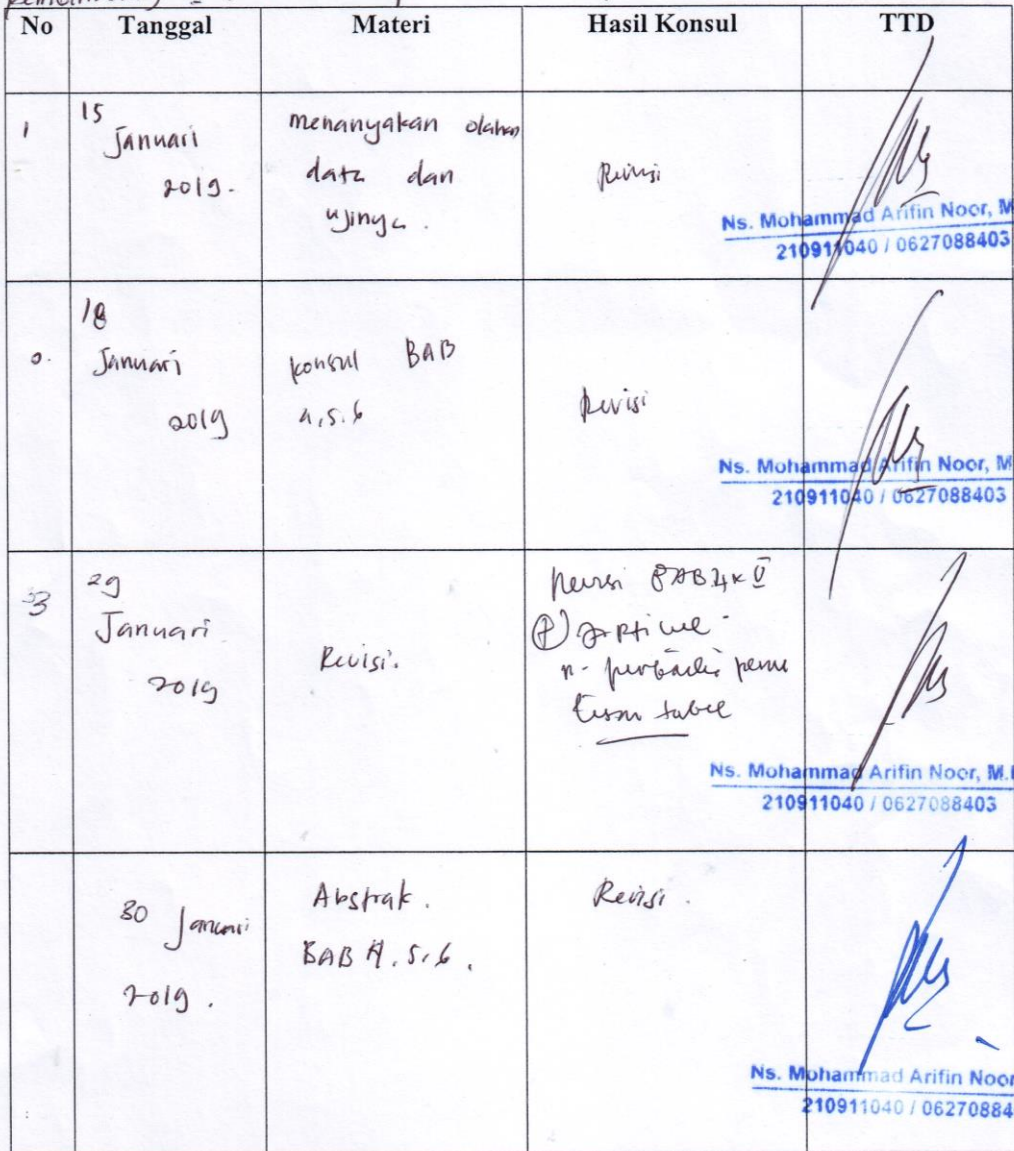 No Tanggal Materi Hasil Konsul TTD
1
15
Januari
2019.
menanyakan olahan
data dan
ujinya.
Revisi
Ns. Mohammad Arifin Noor, M
210911040 / 0627088403
18
Januari
2019
konsul BAB
4,5.6
Revisi
Ns. Mohammad Arifin Noor, M
210911040 / 0627088403
3
29
Januari
2019
Revisi.
tabel
Ns. Mohammad Arifin Noor, M.
210911040 / 0627088403
30 Januari
2019.
Abstrak.
BAB 4.5.6.
Revisi.
Ns. Mohammad Arifin Noor
210911040 / 06270884